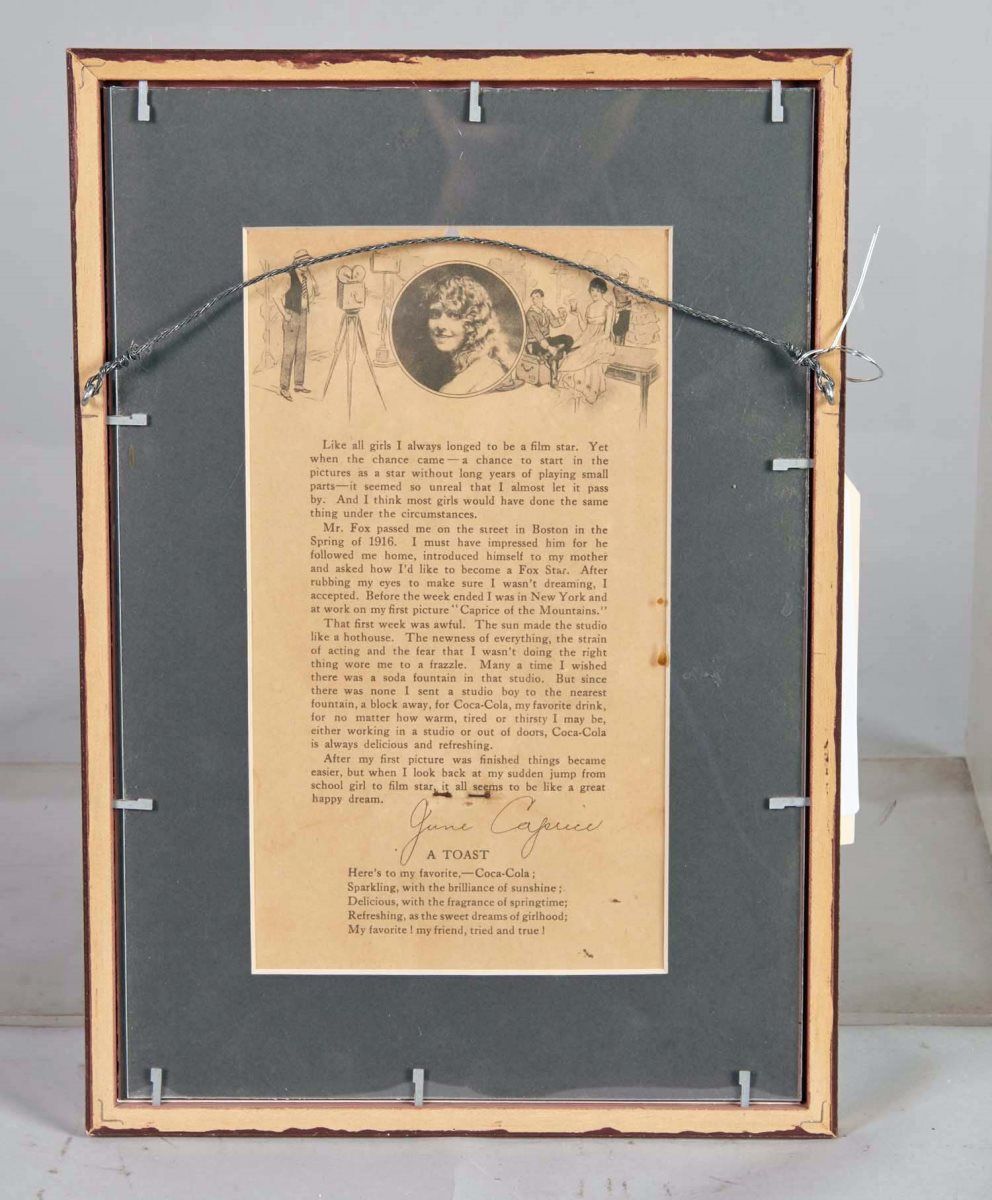 Like all girls I always longed to be a film star. Yet
when the chance came — a chance to start in the
pictures as a star without long years of playing small
parts—it seemed so unreal that I almost let it pass
by. And I think most girls would have done the same
thing under the circumstances.
Mr. Fox passed me on the street in Boston in the
Spring of 1916. I must have impressed him for he
followed me home, introduced himself to my mother
and asked how I'd like to become a Fox Star. After
rubbing my eyes to make sure I wasn't dreaming, I
accepted. Before the week ended I was in New York and
at work on my first picture "Caprice of the Mountains."
That first week was awful. The sun made the studio
like a hothouse. The newness of everything, the strain
of acting and the fear that I wasn't doing the right
thing wore me to a frazzle. Many a time I wished
there was a soda fountain in that studio. But since
there was none I sent a studio boy to the nearest
fountain, a block away, for Coca-Cola, my favorite drink,
for no matter how warm, tired or thirsty I may be,
either working in a studio or out of doors, Coca-Cola
is always delicious and refreshing.
After my first picture was finished things became
easier, but when I look back at my sudden jump from
school girl to film star, it all seems to be like a great
happy dream.
June Caprice
A TOAST
Here's to my favorite,—Coca-Cola;
Sparkling, with the brilliance of sunshine;
Delicious, with the fragrance of springtime;
Refreshing, as the sweet dreams of girlhood;
My favorite! my friend, tried and true!